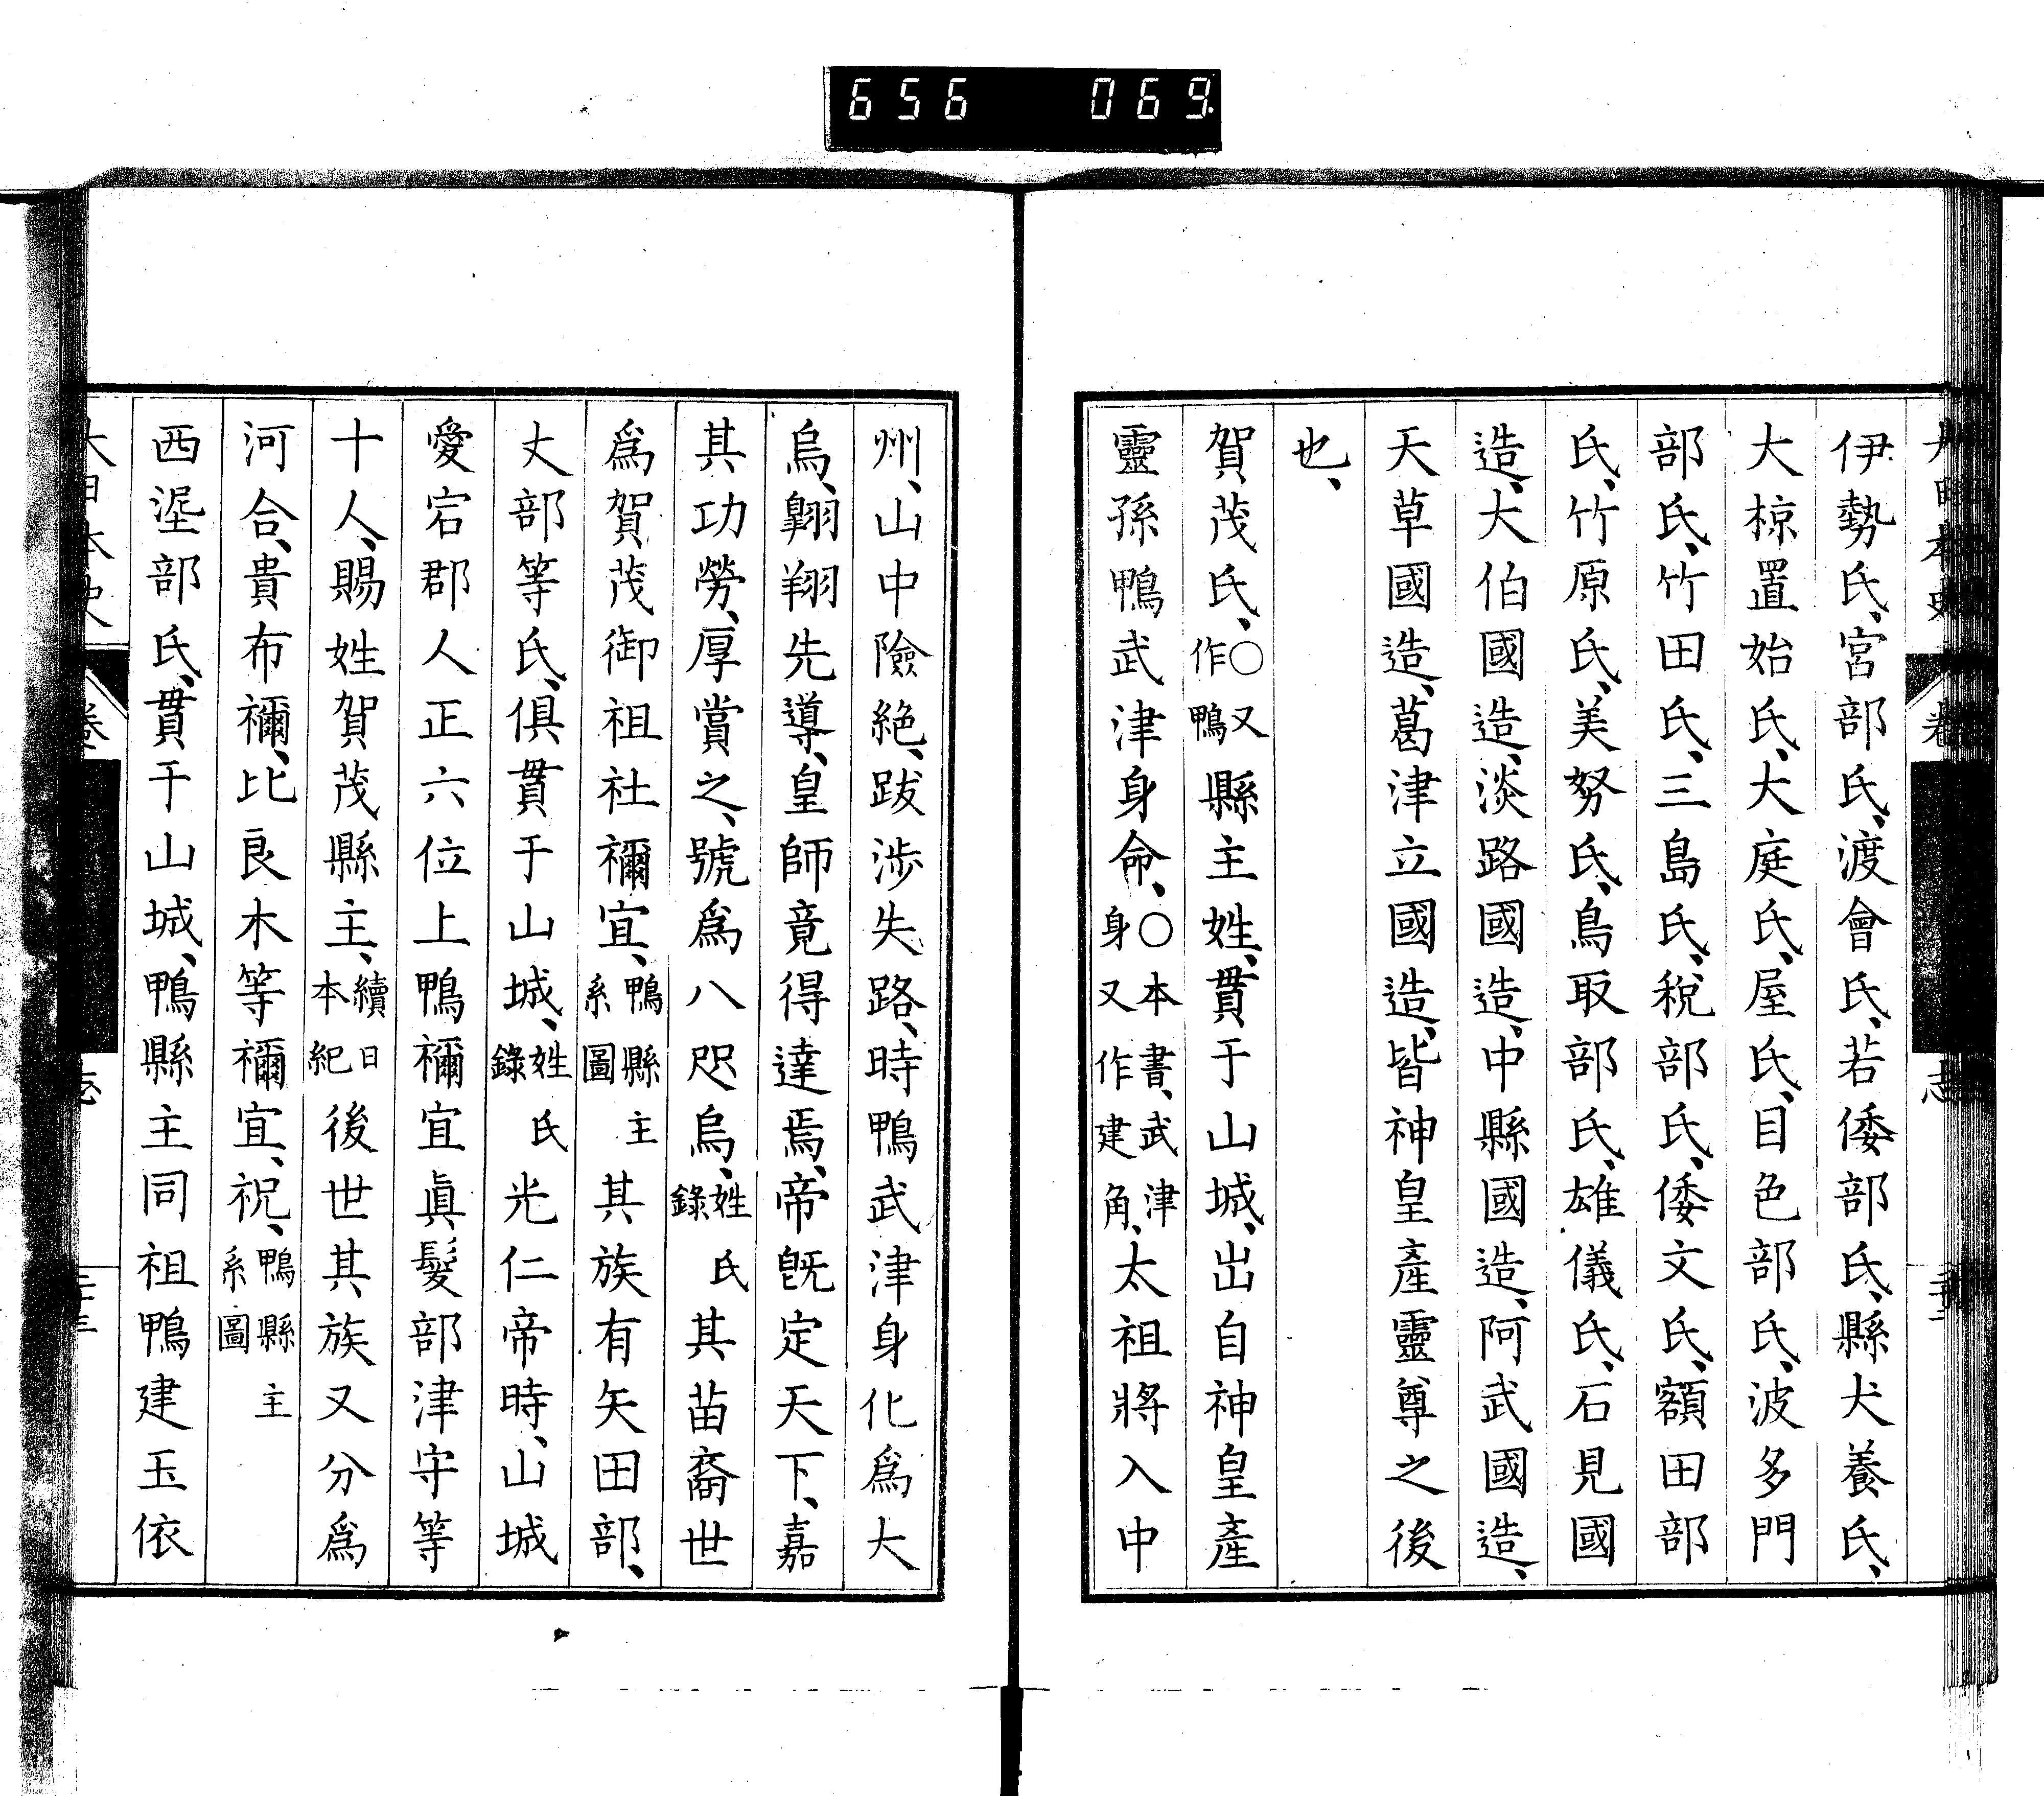 656 069
伊勢氏、宮部氏、渡會氏、若倭部氏、縣犬養氏、
大椋置始氏、大庭氏、屋氏、目色部氏、波多門
部氏、竹田氏、三島氏、稅部氏、倭文氏、額田部
氏、竹原氏、美努氏、鳥取部氏、雄儀氏、石見國
造、大伯國造、淡路國造、中縣國造、阿武國造、
天草國造、葛津立國造、皆神皇產靈尊之後
也、
賀茂氏、○又作鴨縣主姓、貫于山城、出自神皇產
靈孫鴨武津身命、○本書、武津身又作建角、太祖將入中
州、山中險絕、跋涉失路、時鴨武津身化爲大
烏、翺翔先導、皇師竟得達焉、帝旣定天下、嘉
其功勞、厚賞之、號爲八咫烏、姓氏錄其苗裔世
爲賀茂御祖社禰宜、鴨縣主系圖其族有矢田部、
丈部等氏、俱貫于山城、姓氏錄光仁帝時、山城
愛宕郡人正六位上鴨禰宜眞髮部津守等
十人、賜姓賀茂縣主、續日本紀後世其族又分爲
河合、貴布禰、比良木等禰宜、祝、鴨縣主系圖
西埿部氏、貫于山城、鴨縣主同祖鴨建玉依
大日本史 卷 志